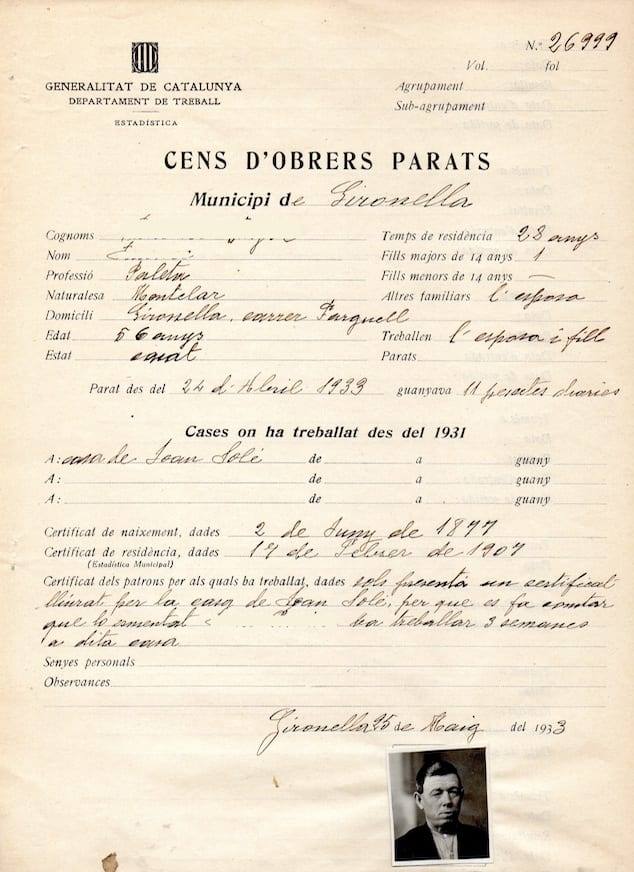 N.º 26999
Vol. fol
GENERALITAT DE CATALUNYA
DEPARTAMENT DE TREBALL
ESTADÍSTICA
Agrupament
Sub-agrupament
CENS D'OBRERS PARATS
Municipi de Gironella
Cognoms
Nom
Professió Paleta
Naturalesa Montclar
Domicili Gironella, carrer Farguell
Edat 56 anys
Estat casat
Temps de residència 28 anys
Fills majors de 14 anys 1
Fills menors de 14 anys —
Altres familiars l'esposa
Treballen l'esposa i fill
Parats
Parat des del 24 d'Abril 1933 guanyava 11 pesetes diaries
Cases on ha treballat des del 1931
A: casa de Joan Solé de a guany
A: de a guany
A: de a guany
Certificat de naixement, dades 2 de Juny de 1877
Certificat de residència, dades 17 de Febrer de 1907
(Estadística Municipal)
Certificat dels patrons per als quals ha treballat, dades sols presenta un certificat
lliurat per la casa de Joan Solé, per que es fa constar
que lo esmentat ha treballar 3 semanes
a dita casa
Senyes personals
Observances
Gironella 25 de Maig del 1933